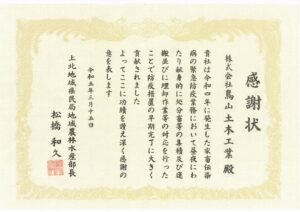 感謝状
株式会社鳥山土木工業 殿
貴社は令和四年に発生した家畜伝染
病の緊急防疫業務において昼夜にわ
たり献身的に処分畜等の運搬及び運
搬並びに埋却作業等の対応を行った
ことで防疫措置の早期完了に大きく
貢献されました
よってここに功績を讃え深く感謝の
意を表します
令和五年三月十五日
上北地域県民局地域農林水産部長
松橋 和久